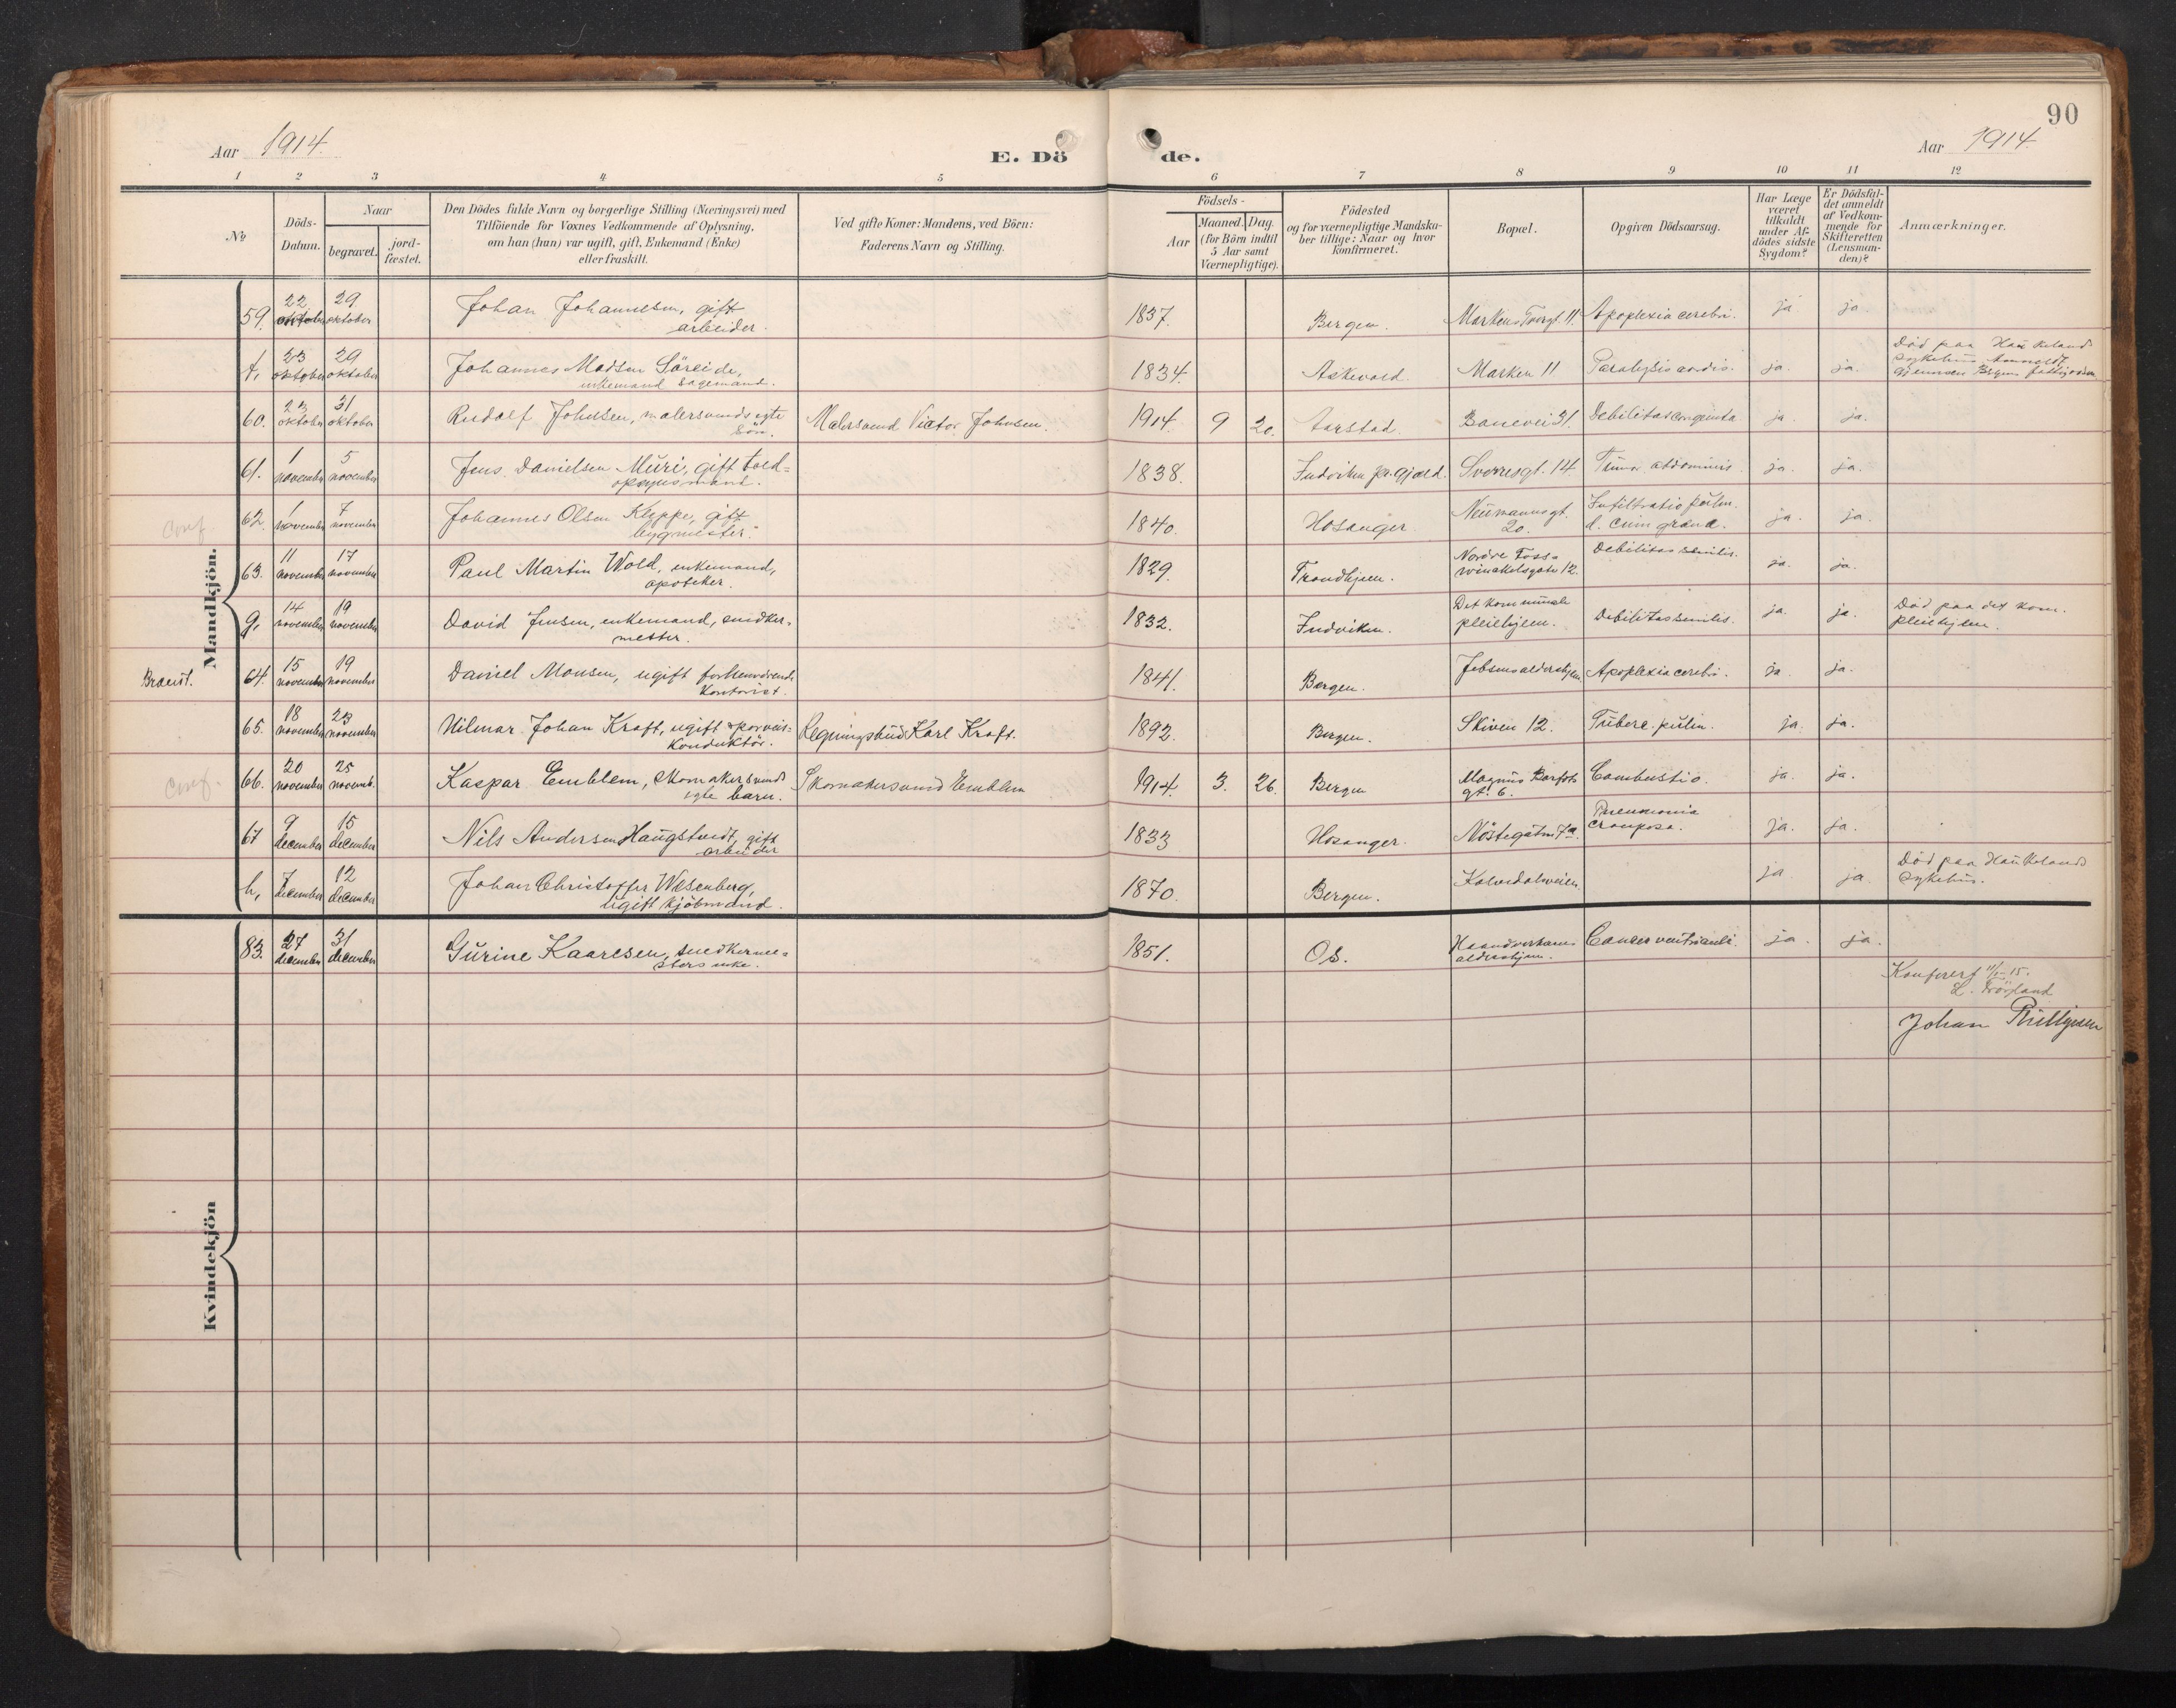 90
Aar 1914.
E. Dö
de.
Aar 1914
1 2 3 4 5 6 7 8 9 10 11 12
№
Döds-
Datum.
Naar
begravet.
jord-
fæstet.
Den Dödes fulde Navn og borgerlige Stilling (Næringsvei) med
Tilföiende for Voxnes Vedkommende af Oplysning,
om han (hun) var ugift, gift, Enkemand (Enke)
eller fraskilt.
Ved gifte Koner: Mandens, ved Börn:
Faderens Navn og Stilling.
Födsels-
Aar
Maaned. Dag.
(for Börn indtil
5 Aar samt
Værnepligtige).
Födested
og for værnepligtige Mandska-
ber tillige: Naar og hvor
konfirmeret.
Bopæl.
Opgiven Dödsaarsag.
Har Læge
været
tilkaldt
under Af-
dödes sidste
Sygdom?
Er Dödsfal-
det anmeldt
af Vedkom-
mende for
Skifteretten
(Lensman-
den)?
Anmærkninger.
Mandkjön.
59. 22 oktober 29 oktober Johan Johannesen, gift
arbeider. 1837. Bergen. Marken Tvergt. 11. Apoplexia cerebri. ja ja
f, 23 oktober 29 oktober Johannes Madsen Söreide,
enkemand sagemand. 1834. Askevold. Marken 11 Paralysis cordis. ja. ja. Död paa Haukeland
sykehus. Anmeldt
gjennem Bergens
60. 23 oktober 31 oktober Rudolf Johnsen, malersvends egte
sön. Malersvend Victor Johnsen. 1914. 9 20. Aarstad. Banevei 31. Debilitas congenita ja. ja.
61. 1 november 5 november Jens Danielsen Müri, gift told-
opsynsmand. 1838. Indviken pr.gjæld. Sverresgt. 14. Tumor abdominis. ja. ja.
conf. 62. 1 november 7 november Johannes Olsen Kleppe, gift
bygmester. 1840. Hosanger Neümannsgt.
20. Infiltratio pülm.
d. cum grand. ja. ja.
63. 11 november 17 november Paul Martin Wold, enkemand,
apoteker. 1829. Trondhjem. Nordre Foss-
winckelsgate 12. Debilitas senilis. ja. ja.
g, 14 november 19 november David Jensen, enkemand, snedker-
mester. 1832. Indviken. Det kommunale
pleiehjem. Debilitas senilis. ja. ja. Död paa det kom.
pleiehjem.
64. 15 november 19 november Daniel Monsen, ugift forhenværende
kontorist. 1841. Bergen. Jebsens aldershjem. Apoplexia cerebri. ja ja.
65. 18 november 23 november Hilmar Johan Kraft, ugift sporveis-
konduktör. Regningsbud Karl Kraft. 1892. Bergen. Skiven 12. Tüberc. pülm. ja. ja.
conf. 66. 20 november 25 novemb. Kaspar Emblem, skomakersvends
egte barn. Skomakersvend Emblem 1914. 3. 26. Bergen Magnus Barfots
gt. 6. Combustio. ja. ja.
67 9 december 15 december Nils Andersen Haügstvedt, gift
arbeider 1833 Hosanger. Nöstegaten 7a. Pneumonia
crouposa. ja. ja.
h, 7 december 12 december Johan Christoffer Wesenberg,
ugift kjöbmand. 1870. Bergen. Kalvedalsveien ja ja Död paa Haukeland
sykehus.
Kvindekjön
83. 27 december 31 december Gürine Kaaresen, snedkerme-
sters enke. 1851. Os. Haandverkernes
aldershjem. Cancer ventriculi. ja. ja.
Konferert 11/1-15.
Johan